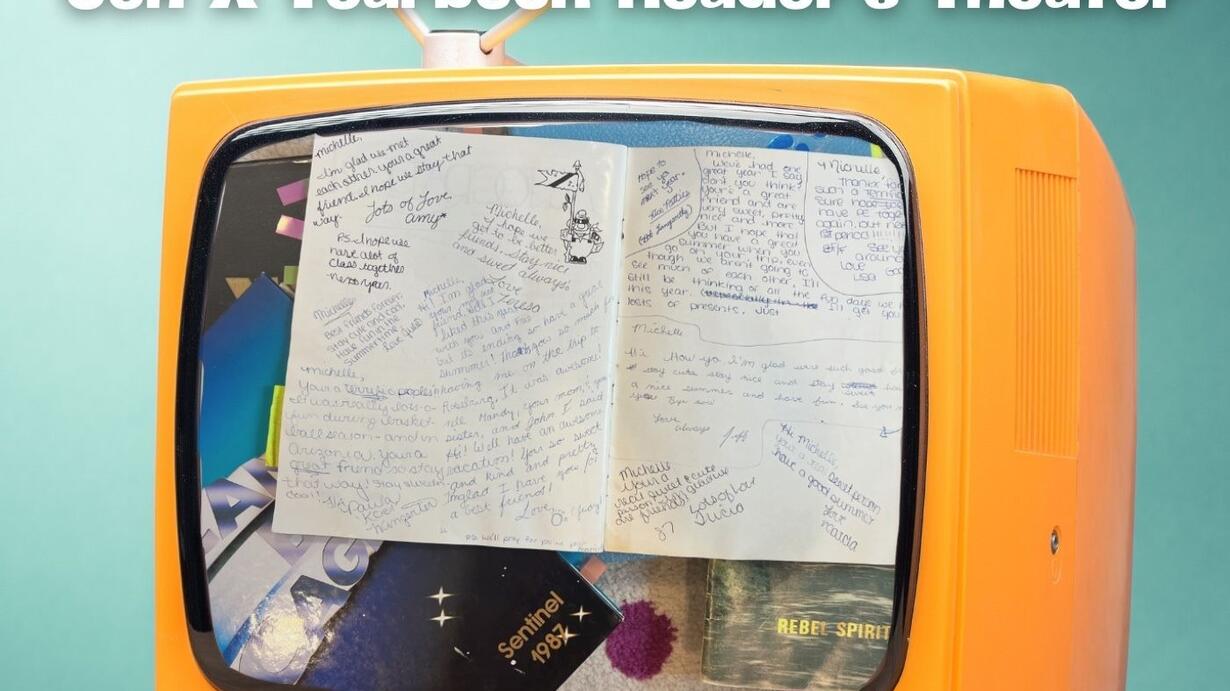 Gen X Yearbook Reader's Theater
Michelle,
I'm glad we met
each other. your a great
friend. I hope we stay that
way.
Lots of Love
amy*
P.S. I hope we
have alot of
class together
next year.
Michelle,
I hope we
get to be better
friends. Stay nice
and sweet always
Love
Teresa
Michelle,
Best friends forever
Stay cute and cool.
Have fun in the
summer time
Michelle,
Hi! I'm glad
your my
friend.
liked this year
with you and has
but its ending so have a great
Summer! Thank you so much for
having me on the trip to
Roseburg. It was awesome!
Tell Mandy, your mom,
sister, and John I said
Hi! We'll have an awesome
vacation! Your so sweet
and kind and pretty
I'm glad I have you for
a best friend!
Love,
Michelle,
Your a terrific
It was really lots-a
fun during basket-
ball season- and in
Arizona. your a
great friend so stay
that way! Stay sweet
cool!
Paula
Hope to
see ya
next year.
Michelle,
We've had one
great year I say
don't you think?
You're a great
friend and are
very sweet, pretty
nice and more.
But I hope that
you have a great
summer when you
go on your trip, even
though we aren't going to
see much of each other, I'll
still be thinking of all the fun days we h
this year. I'll get you
lots of presents. Just
Michelle
Thanks for
such a terrific
Sure hope you
have PE together
again, but not
1st period!!!!
See ya
around
Love
Lisa
Michelle
Hi. How ya. I'm glad were such good
stay cute stay nice and stay sweet
a nice summer and have fun. See you n
Bye
Love
always
Michelle
Your a
real sweet & cute
person. I'm glad we
are friends
Lots of Luv
Tricia
87
Hi Michelle,
your a real sweet person
have a good summer
Love
Marcia
Sentinel
1987
REBEL SPIRIT